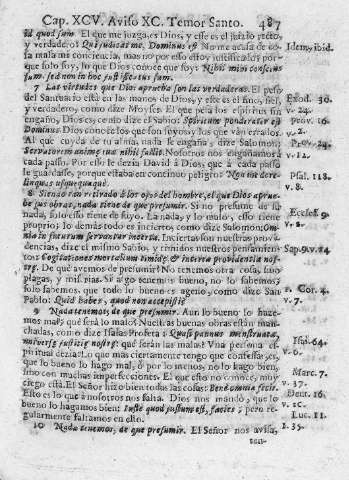 Cap. XCV. Aviso XC. Temor Santo. 487
id quod sum. El que me juzga, es Dios, y esse es el juizio recto,
y verdadero: Qui judicat me, Dominus est. No me acusa de co-
sa mala mi conciencia, mas no por esso estoy justificado: por
que solo soy, lo que Dios conoce que soy: Nihil mihi conscius
sum, sed non in hoc justificatus sum.
Idem, ibid.
7 Las virtudes que Dios aprueba son las verdaderas. El peso
del Santuario està en las manos de Dios, y este es el fino, fiel,
y verdadero, como dize Moyses. El que pesa los espiritus sin
engaño, Dios es, como dize el Sabio: Spirituum ponderator est
Dominus. Dios conoce los que son suyos, y los que vàn errados.
Al que cuyda de tu alma, nada le engaña; dize Salomon:
Servatorem animæ tuæ nihil fallit. Nosotros nos engañamos à
cada passo. Por esso le dezia David à Dios, que à cada passo
le guardasse, porque estaba en continuo peligro: Non me dere-
linquas usquequaque.
Exod. 30.
v. 24.
Prov. 16.
v. 2.
Prov. 24.
v. 12.
Psal. 118.
v. 8.
8 Siendo tan relevado à los ojos del hombre, el que Dios aprue-
be sus obras, nada tiene de que presumir. Si no presume de su
nada, solo esso tiene de suyo. La nada, y lo malo, esso tiene
proprio; lo demàs todo es incierto, como dize Salomon: Om-
nia in futurum servantur incerta. Inciertas son nuestras pro-
videncias, dize el mismo Sabio, y timidos nuestros pensamien-
tos: Cogitationes mortalium timidæ, & incertæ providentiæ nos-
træ. De què avemos de presumir? No tenemos otra cosa, sino
plagas, y miserias. Si algo tenemos bueno, no lo sabemos;
solo sabemos, que todo lo bueno es ageno, como dize San
Pablo: Quid habes, quod non accepisti?
Eccles. 9.
v. 2.
Sap. 9. v. 14
1. Cor. 4.
v. 7.
9 Nada tenemos, de que presumir. Aun lo bueno lo haze-
mos mal; què serà lo malo? Nuestras buenas obras estàn man-
chadas, como dize Isaias Profeta: Quasi pannus menstruatæ,
universæ justitiæ nostræ: què seràn las malas? Una persona es-
piritual dezia: Lo que mas ciertamente tengo que confessar, es,
que lo bueno lo hago mal, ò por lo menos, no lo hago bien,
sino con muchas imperfecciones. El que esto no conoce, muy
ciego està. El Señor hizo bien todas las cosas: Benè omnia fecit.
Esto es lo que à nosotros nos falta. Dios nos mandò, que lo
bueno lo hagamos bien: Justè quod justum est, facies; pero re-
gularmente faltamos en ello.
Isai. 64.
v. 6.
Marc. 7.
v. 37.
Deut. 16.
v. 20.
10 Nada tenemos, de que presumir. El Señor nos avisa,
Luc. 11.
v. 35.